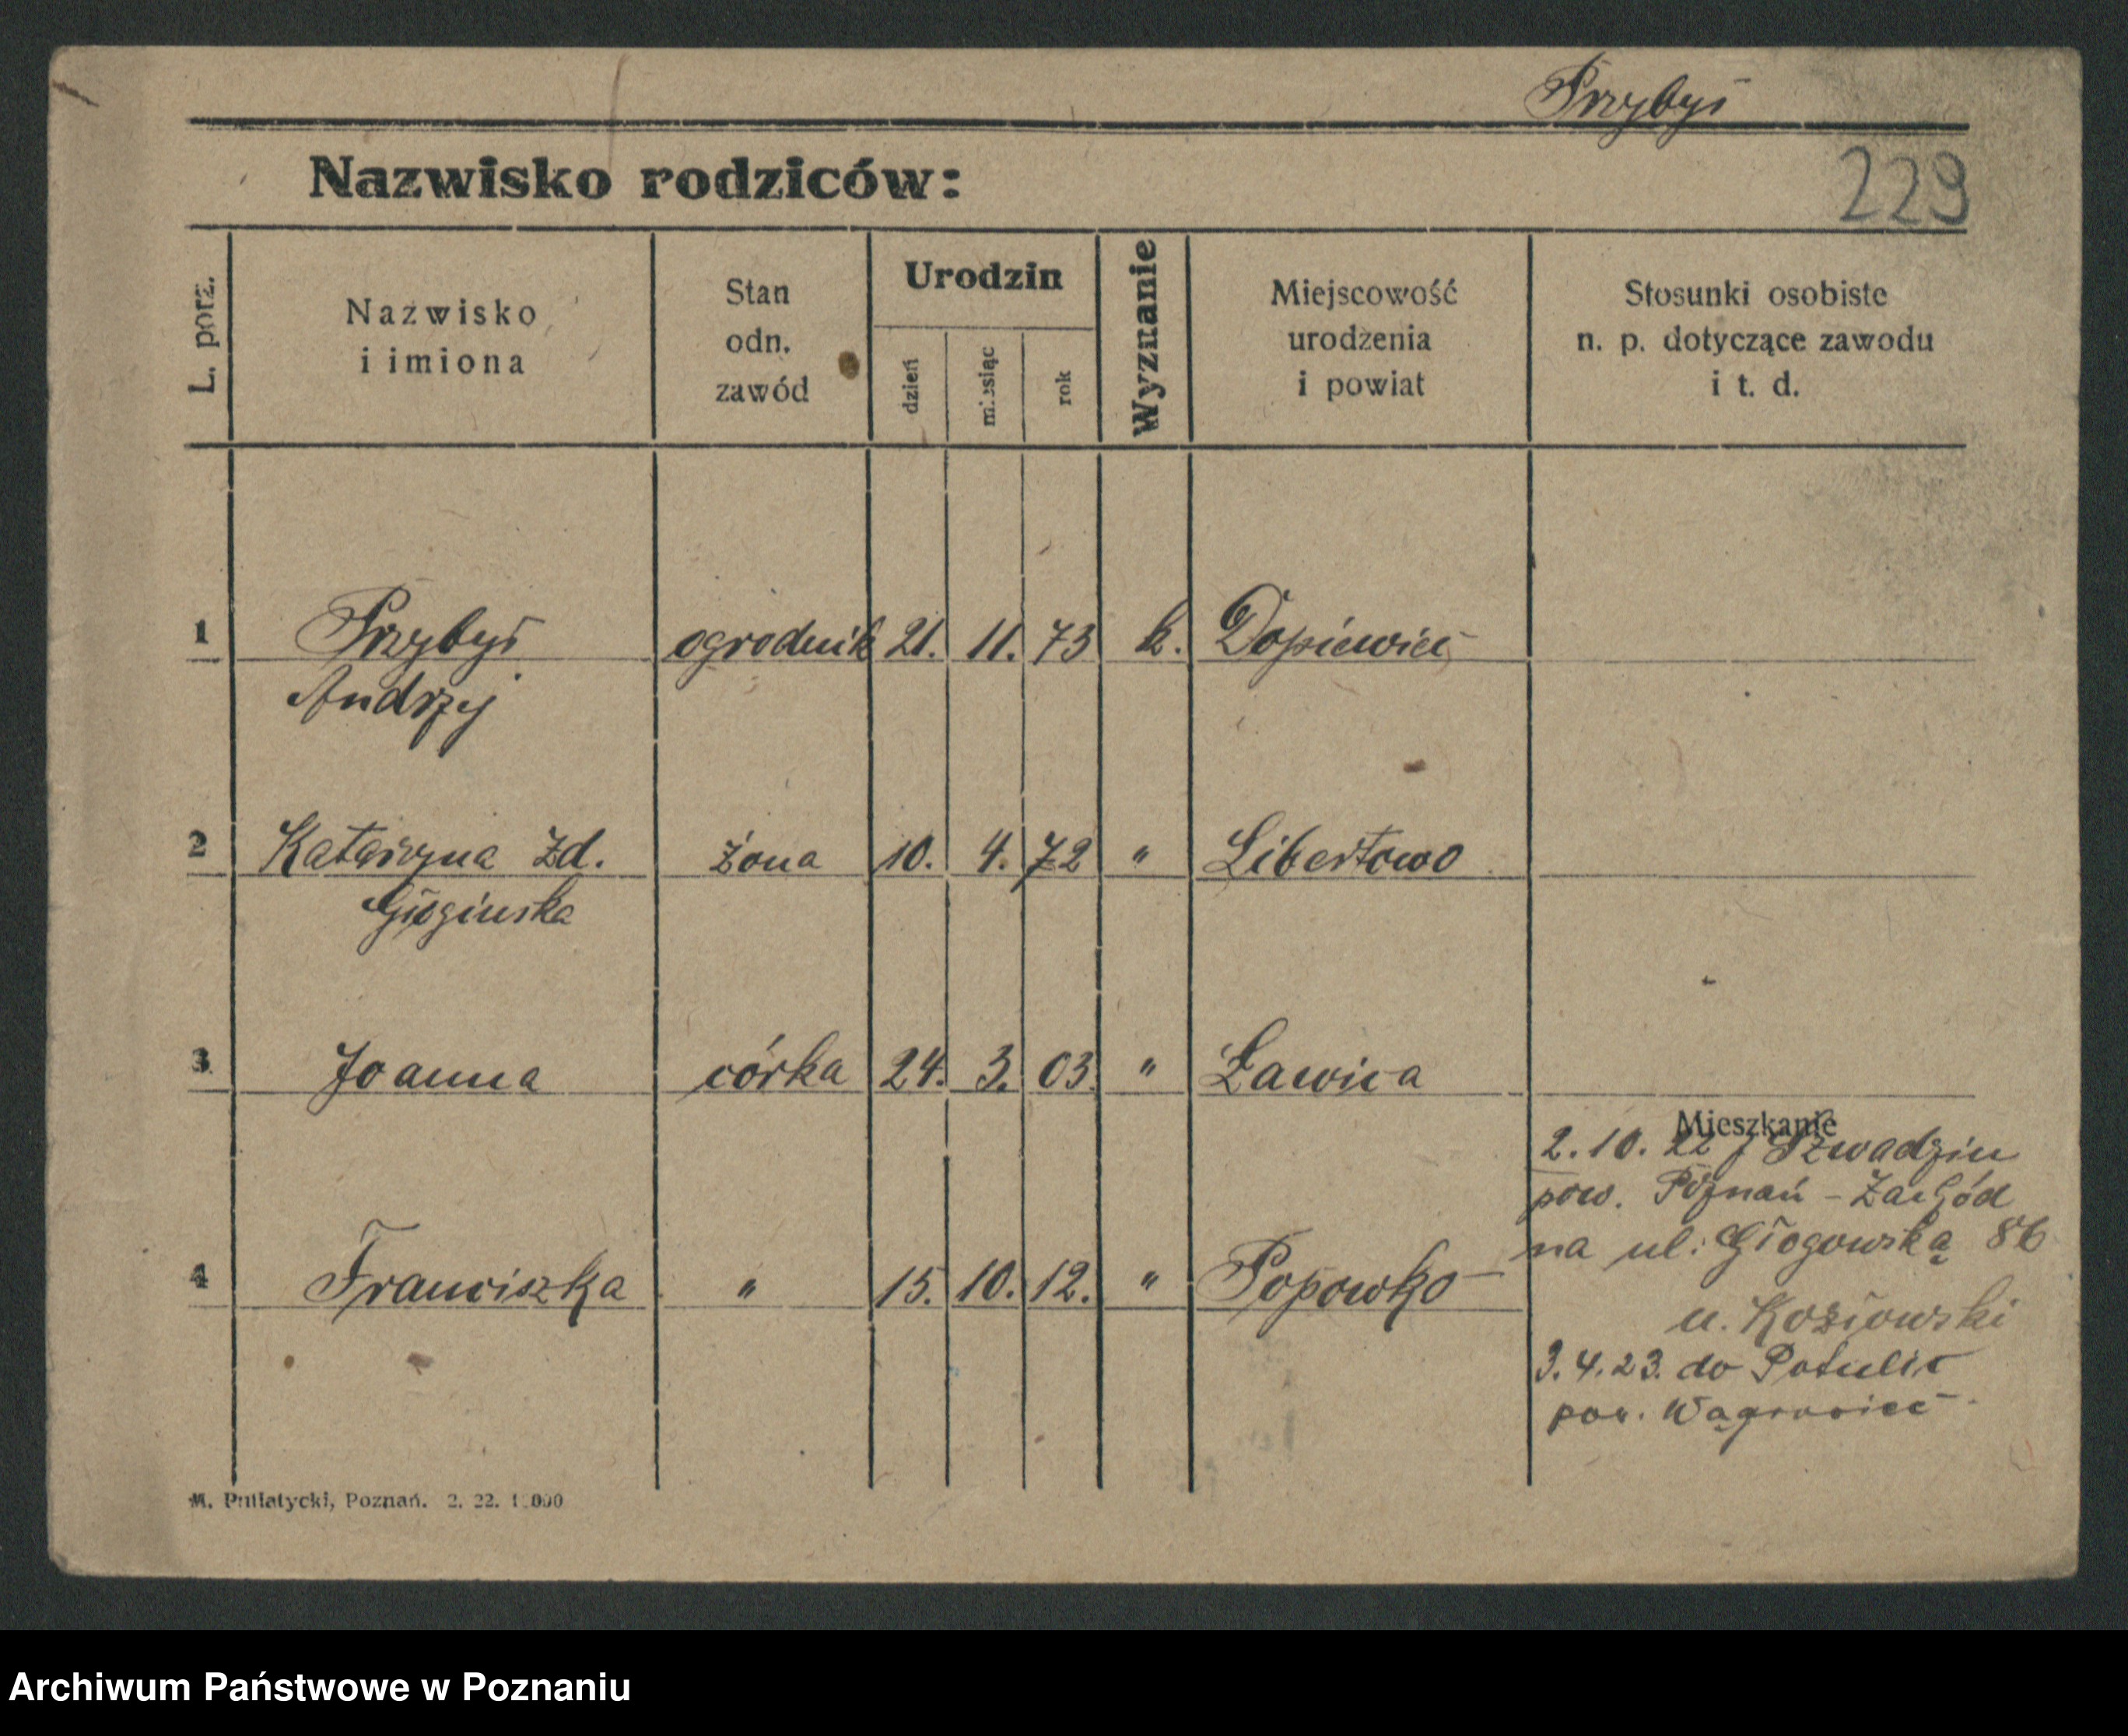 Przybył
Nazwisko rodziców:
229
L. porz.
Nazwisko
i imiona
Stan
odn.
zawód
Urodzin
dzień
miesiąc
rok
Wyznanie
Miejscowość
urodzenia
i powiat
Stosunki osobiste
n. p. dotyczące zawodu
i t. d.
1 Przybył ogrodnik 21. 11. 73 k. Dopiewiec
Andrzej
2 Katarzyna zd. żona 10. 4. 72 " Libertowo
3 Joanna córka 24. 3. 03. " Ławica
Mieszkanie
2. 10. 22 z
pow. Poznań - Zachód
na ul. Głogowską 86
4 Franciszka " 15. 10. 12. " Popowko
u. Kozłowski
3. 4. 23. do Potulic
pow. Wągrowiec
Poznań. 2. 22.
Archiwum Państwowe w Poznaniu